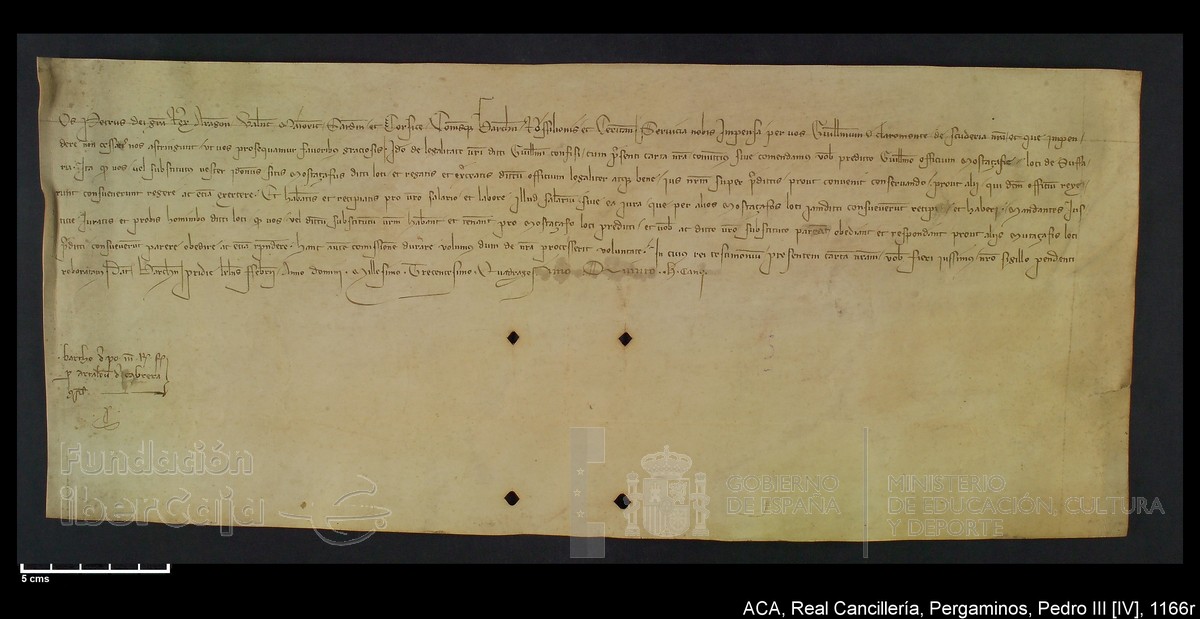 Os Petrus dei gra Rex Aragon Valent Maioric Sardin et Corsice Comesq Barchn Rossilionis et Ceritan Servicia nobis impensa per vos Guillmum de claromonte de scuderia nra et que impen
dere non cessatis nos astringunt ut vos prosequamur favoribs graciosis Ido de legalitate vri dicti Guillmi confisi cum psenti carta nra comittim sive comendamus vob predicto Guillmo officium Mostaçafie loci de
Ita q vos vel substitutus vester idoneus sitis Mostaçafius dicti loci et regatis et exerceatis dictum officium legaliter atq bene ius nrm super pdictis prout convenit conservando prout alij qui dcm officium rexe
runt consueverunt regere ac eciam exercere Et habeatis et recipiatis pro vro salario et labore illud salarium sive ea iura que per alios Mostaçafos loci iamdicti consueverunt recipi et haberi Mandantes
Juratis et probis hominibs dicti loci q vos vel dictum substitutum vrm habeant et teneant pro Mostaçafo loci predicti et vob ac dicto vro substituto pareant obediant et respondant prout alijs Mutaçafis loci
pdicti consueverunt parere obedire ac eciam respondere hanc aute comissionem durare volumus dum de nra processerit voluntate In cuius rei testimonium presentem cartam nram vob fieri iussimus nro sigillo pendenti
roboratam Dat Barchn pridie klns Febrer Anno domini Millesimo Trecentesimo Quadragesimo Quinto H Canc
bartho d po m R
p d cabrera
Fundación
iberCaja
GOBIERNO
DE ESPAÑA
MINISTERIO
DE EDUCACIÓN, CULTURA
Y DEPORTE
5 cms
ACA, Real Cancillería, Pergaminos, Pedro III [IV], 1166r